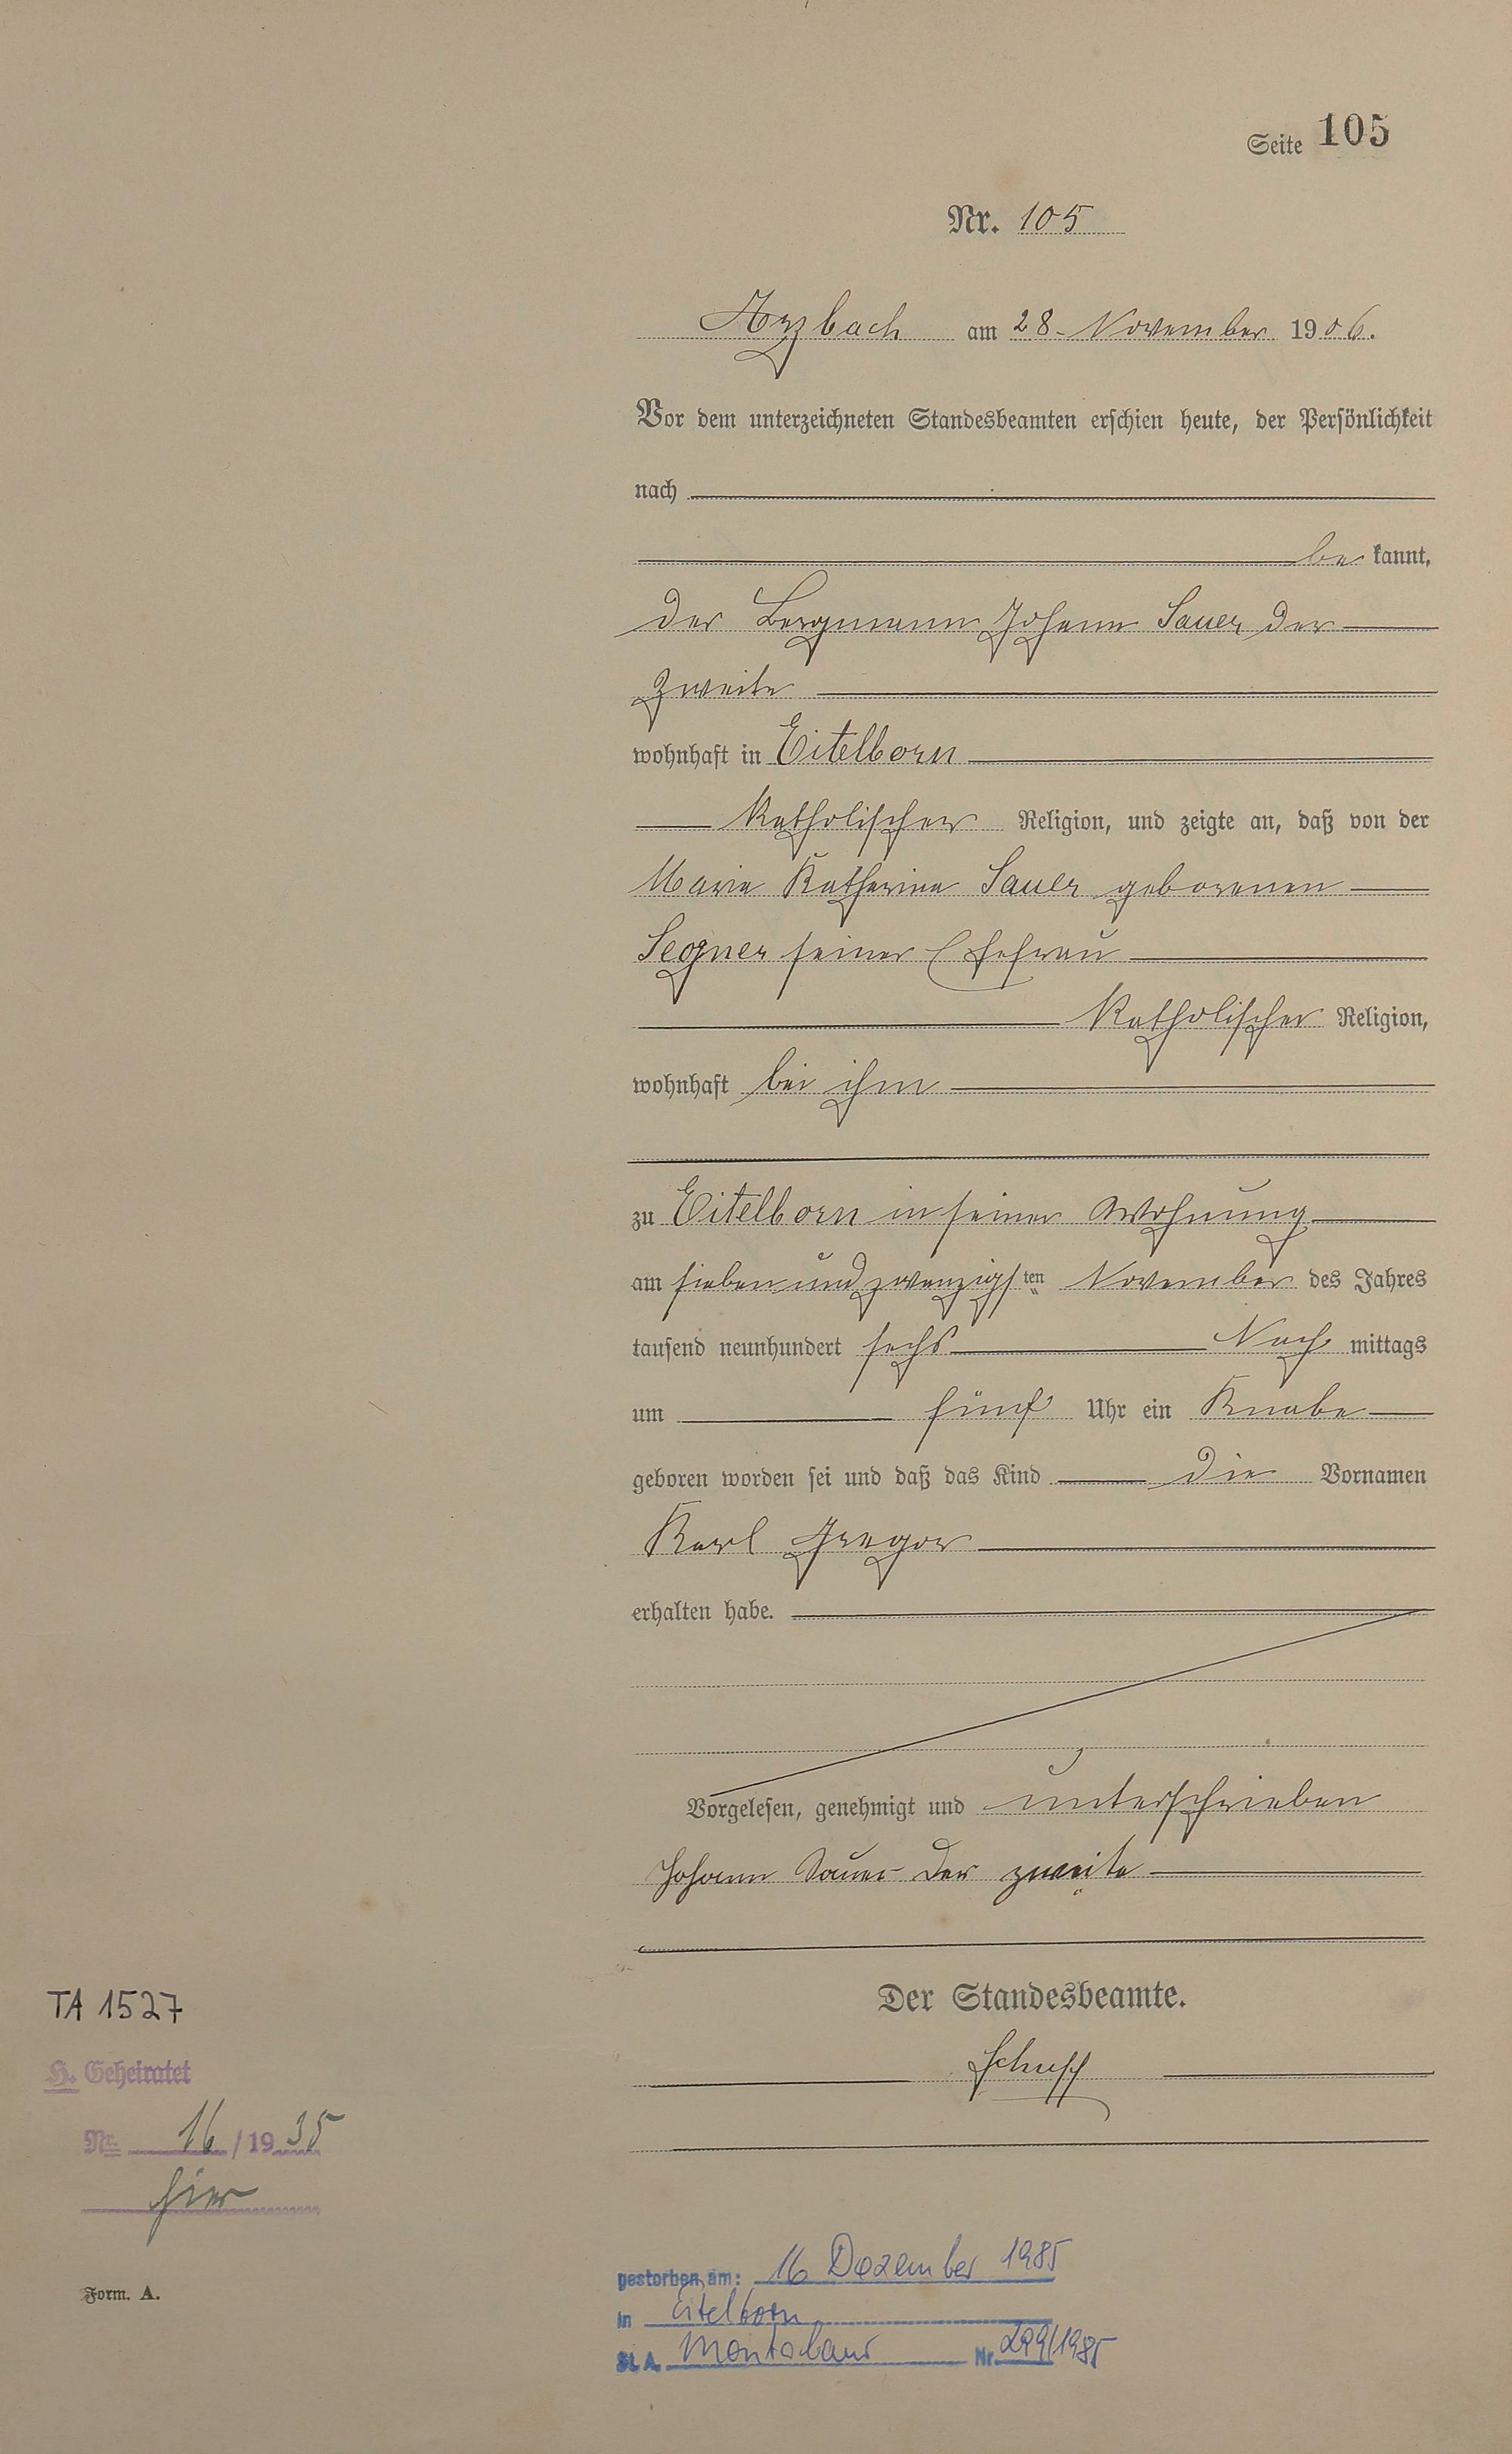 Seite 105
Nr. 105
Arzbach am 28. November 1906.
Vor dem unterzeichneten Standesbeamten erschien heute, der Persönlichkeit
nach
be kannt,
der Bergmann Johann Sauer der
zweite
wohnhaft in Eitelborn
katholischer Religion, und zeigte an, daß von der
Maria Katharina Sauer geborenen
Segner seiner Ehefrau
katholischer Religion,
wohnhaft bei ihm
zu Eitelborn in seiner Wohnung
am sieben und zwanzigsten November des Jahres
tausend neunhundert sechs Nach mittags
um fünf Uhr ein Knabe
geboren worden sei und daß das Kind die Vornamen
Karl Gregor
erhalten habe.
Vorgelesen, genehmigt und unterschrieben
Johann Sauer der zweite
Der Standesbeamte.
TA 1527
H. Geheiratet
Nr. 16 / 1935
hier
gestorben am: 16 Dezember 1985
in Eitelborn
St. A. Montabaur Nr. 299/1985
Form. A.